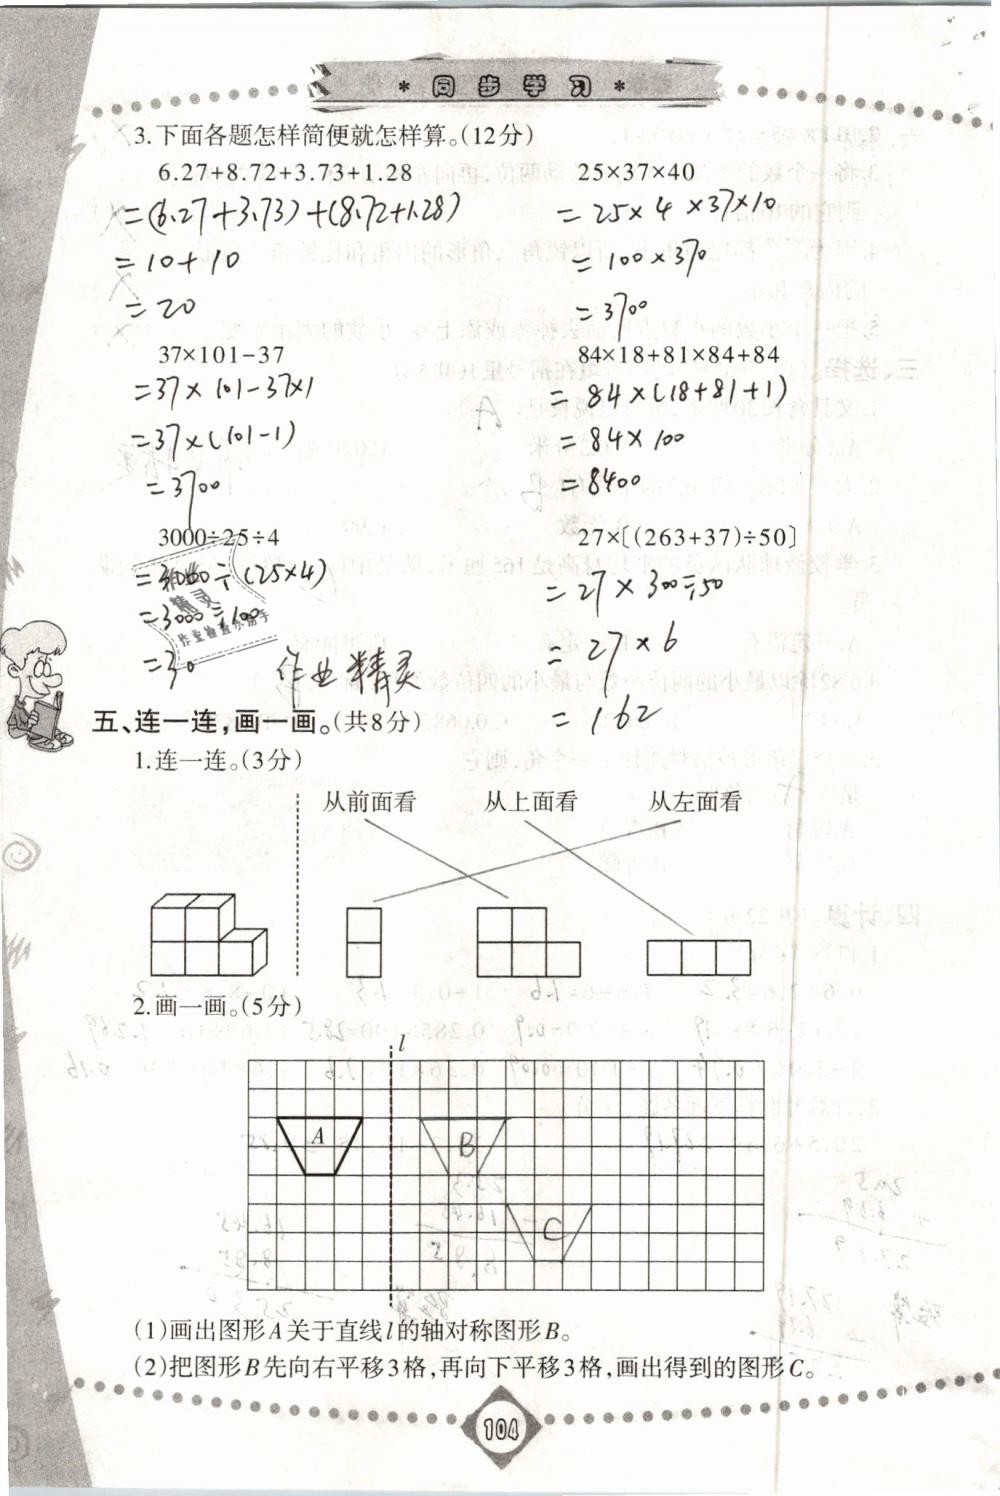 * 同步学习 *
3.下面各题怎样简便就怎样算。(12分)
6.27+8.72+3.73+1.28
25×37×40
=(6.27+3.73)+(8.72+1.28)
=25×4×37×10
=10+10
=100×370
=20
=3700
37×101-37
84×18+81×84+84
=37×101-37×1
=84×(18+81+1)
=37×(101-1)
=84×100
=3700
=8400
3000÷25÷4
27×[(263+37)÷50]
=3000÷(25×4)
=27×300÷50
=3000÷100
=27×6
=30
=162
精灵
作业检查小帮手
作业精灵
五、连一连,画一画。(共8分)
1.连一连。(3分)
从前面看 从上面看 从左面看
2.画一画。(5分)
l
A
B
C
(1)画出图形A关于直线l的轴对称图形B。
(2)把图形B先向右平移3格,再向下平移3格,画出得到的图形C。
104